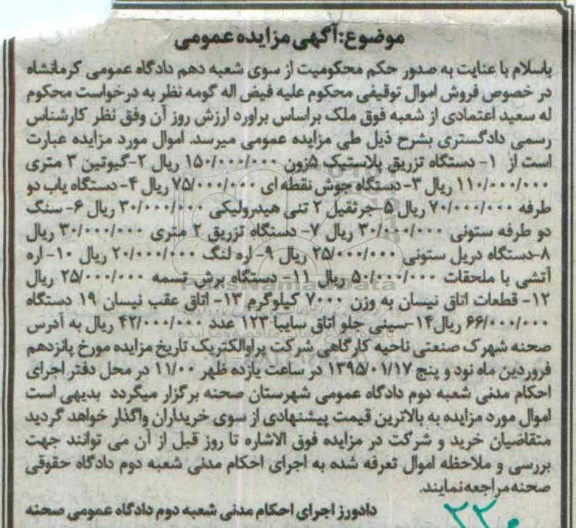 موضوع:آگهی مزایده عمومی
باسلام با عنایت به صدور حکم محکومیت از سوی شعبه دهم دادگاه عمومی کرمانشاه
در خصوص فروش اموال توقیفی محکوم علیه فیض اله گومه نظر به درخواست محکوم
له سعید اعتمادی از شعبه فوق ملک براساس براورد ارزش روز آن وفق نظر کارشناس
رسمی دادگستری بشرح ذیل طی مزایده عمومی میرسد. اموال مورد مزایده عبارت
است از ۱- دستگاه تزریق پلاستیک ۵زون ۱۵۰/۰۰۰/۰۰۰ ریال ۲-گیوتین ۳ متری
۱۱۰/۰۰۰/۰۰۰ ریال ۳-دستگاه جوش نقطه ای ۷۵/۰۰۰/۰۰۰ ریال ۴-دستگاه یاب دو
طرفه ۷۰/۰۰۰/۰۰۰ ریال ۵-جرثقیل ۲ تنی هیدرولیکی ۳۰/۰۰۰/۰۰۰ ریال ۶-سنگ
دو طرفه ستونی ۳۰/۰۰۰/۰۰۰ ریال ۷- دستگاه تزریق ۲ متری ۳۰/۰۰۰/۰۰۰ ریال
۸-دستگاه دریل ستونی ۲۵/۰۰۰/۰۰۰ ریال ۹-اره لنگ ۲۰/۰۰۰/۰۰۰ ریال ۱۰-اره
آتشی با ملحقات ۵۰/۰۰۰/۰۰۰ ریال ۱۱- دستگاه برش تسمه ۲۵/۰۰۰/۰۰۰ ریال
۱۲- قطعات اتاق نیسان به وزن ۷۰۰۰ کیلوگرم ۱۳- اتاق عقب نیسان ۱۹ دستگاه
۶۶/۰۰۰/۰۰۰ ریال۱۴-سینی جلو اتاق سایپا ۱۲۳ عدد ۴۲/۰۰۰/۰۰۰ ریال به آدرس
صحنه شهرک صنعتی ناحیه کارگاهی شرکت پراوالکتریک تاریخ مزایده مورخ پانزدهم
فروردین ماه نود و پنج ۱۳۹۵/۰۱/۱۷ در ساعت یازده ظهر ۱۱/۰۰ در محل دفتر اجرای
احکام مدنی شعبه دوم دادگاه عمومی شهرستان صحنه برگزار میگردد بدیهی است
اموال مورد مزایده به بالاترین قیمت پیشنهادی از سوی خریداران واگذار خواهد گردید
متقاضیان خرید و شرکت در مزایده فوق الاشاره تا روز قبل از آن می توانند جهت
بررسی و ملاحظه اموال تعرفه شده به اجرای احکام مدنی شعبه دوم دادگاه حقوقی
صحنه مراجعه نمایند.
دادورز اجرای احکام مدنی شعبه دوم دادگاه عمومی صحنه
۲۳۰